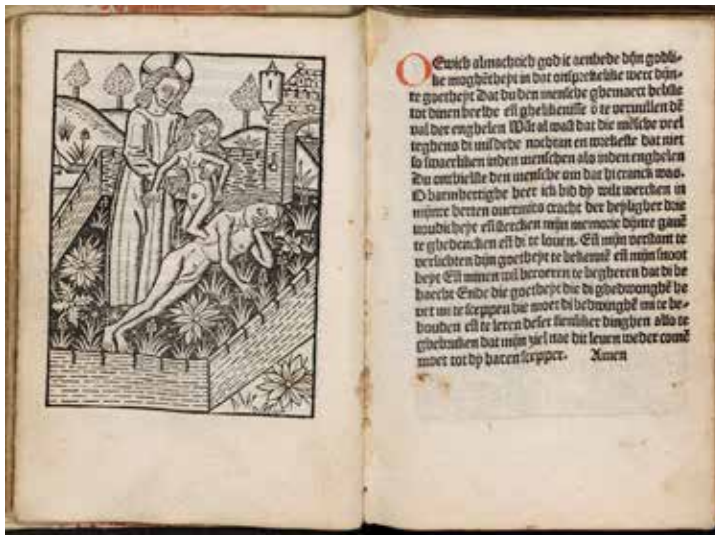 O Ewich almachtich god ic aenbede dijn godli-
ke moghẽtheyt in dat onsprekelike werc dijn-
re goetheyt Dat du den mensche ghemaect hebste
tot dinen beelde eñ ghelikenisse õ te vervullen dẽ
val der enghelen Wãt al wast dat die mẽsche veel
teghens di misdede nochtan en wrekeste dat niet
so swaerliken inden menschen als inden enghelen
Du onthielste den mensche om dat hi cranck was.
O barmhertighe heer ick bid dy wilt wercken in
mijnre herten overmits cracht der heyligher drie
voudicheyt eñ stercken mijn memorie dijnre gauẽ
te ghedencken eñ di te loven. Eñ mijn verstant te
verlichten dijn goetheyt te bekennẽ eñ mijn snoot
heyt Eñ minen wil beroeren te begheren dat di be
haecht Ende die goetheyt die di ghedwonghẽ he
vet mi te sceppen die moet di bedwinghẽ mi te be-
houden eñ te leren deser sienliker dinghen also te
ghebruken dat mijn ziel nae dit leven weder comẽ
moet tot dy haren scepper. Amen